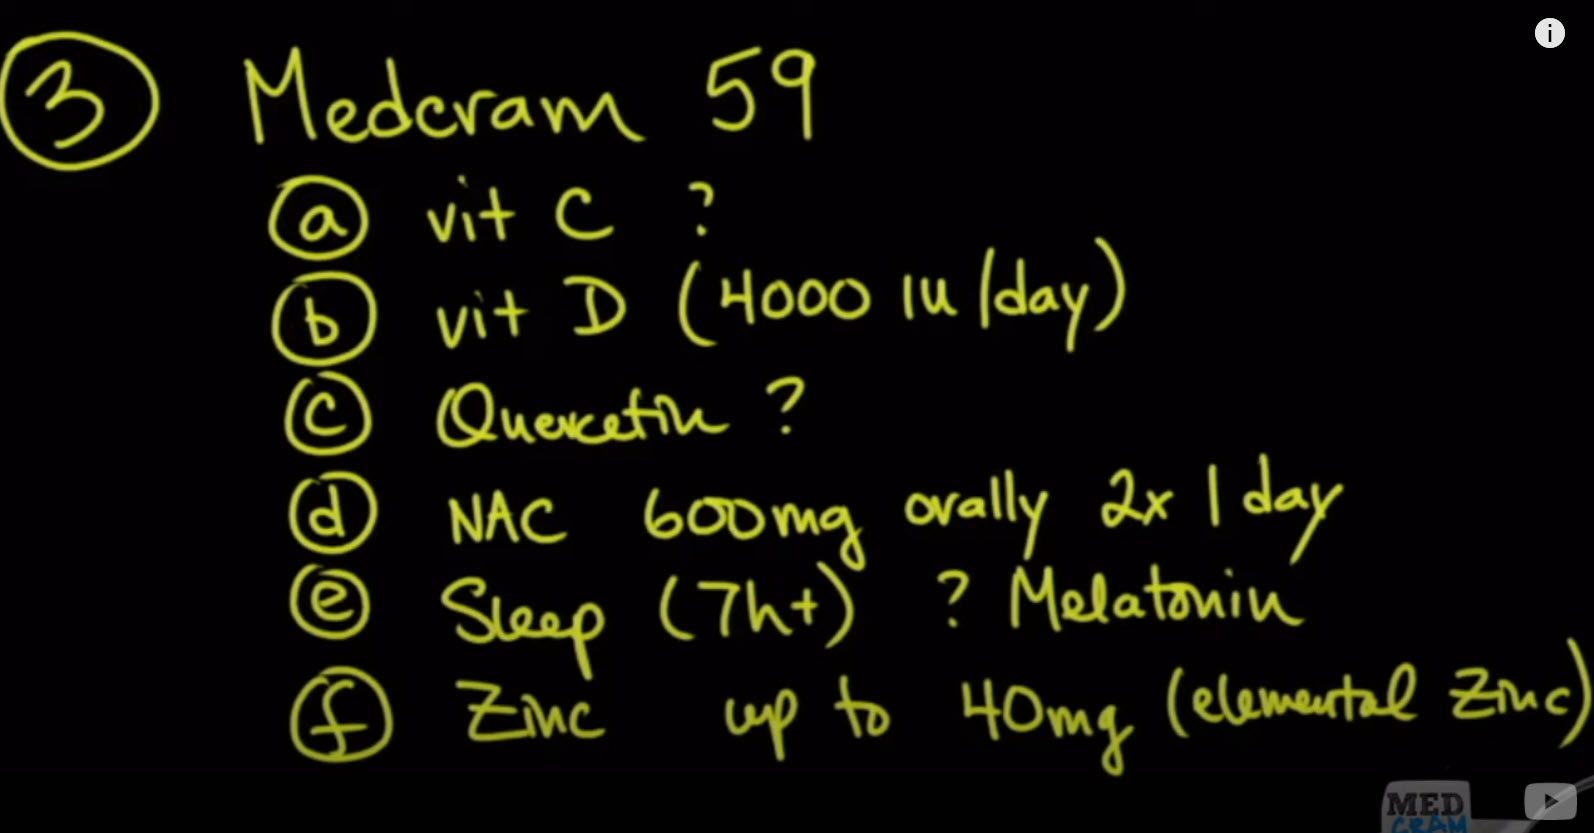 3 Medcram 59
a vit C ?
b vit D (4000 IU/day)
c Quercetin ?
d NAC 600mg orally 2x / day
e Sleep (7h+) ? Melatonin
f Zinc up to 40mg (elemental Zinc)
i
MED
CRAM